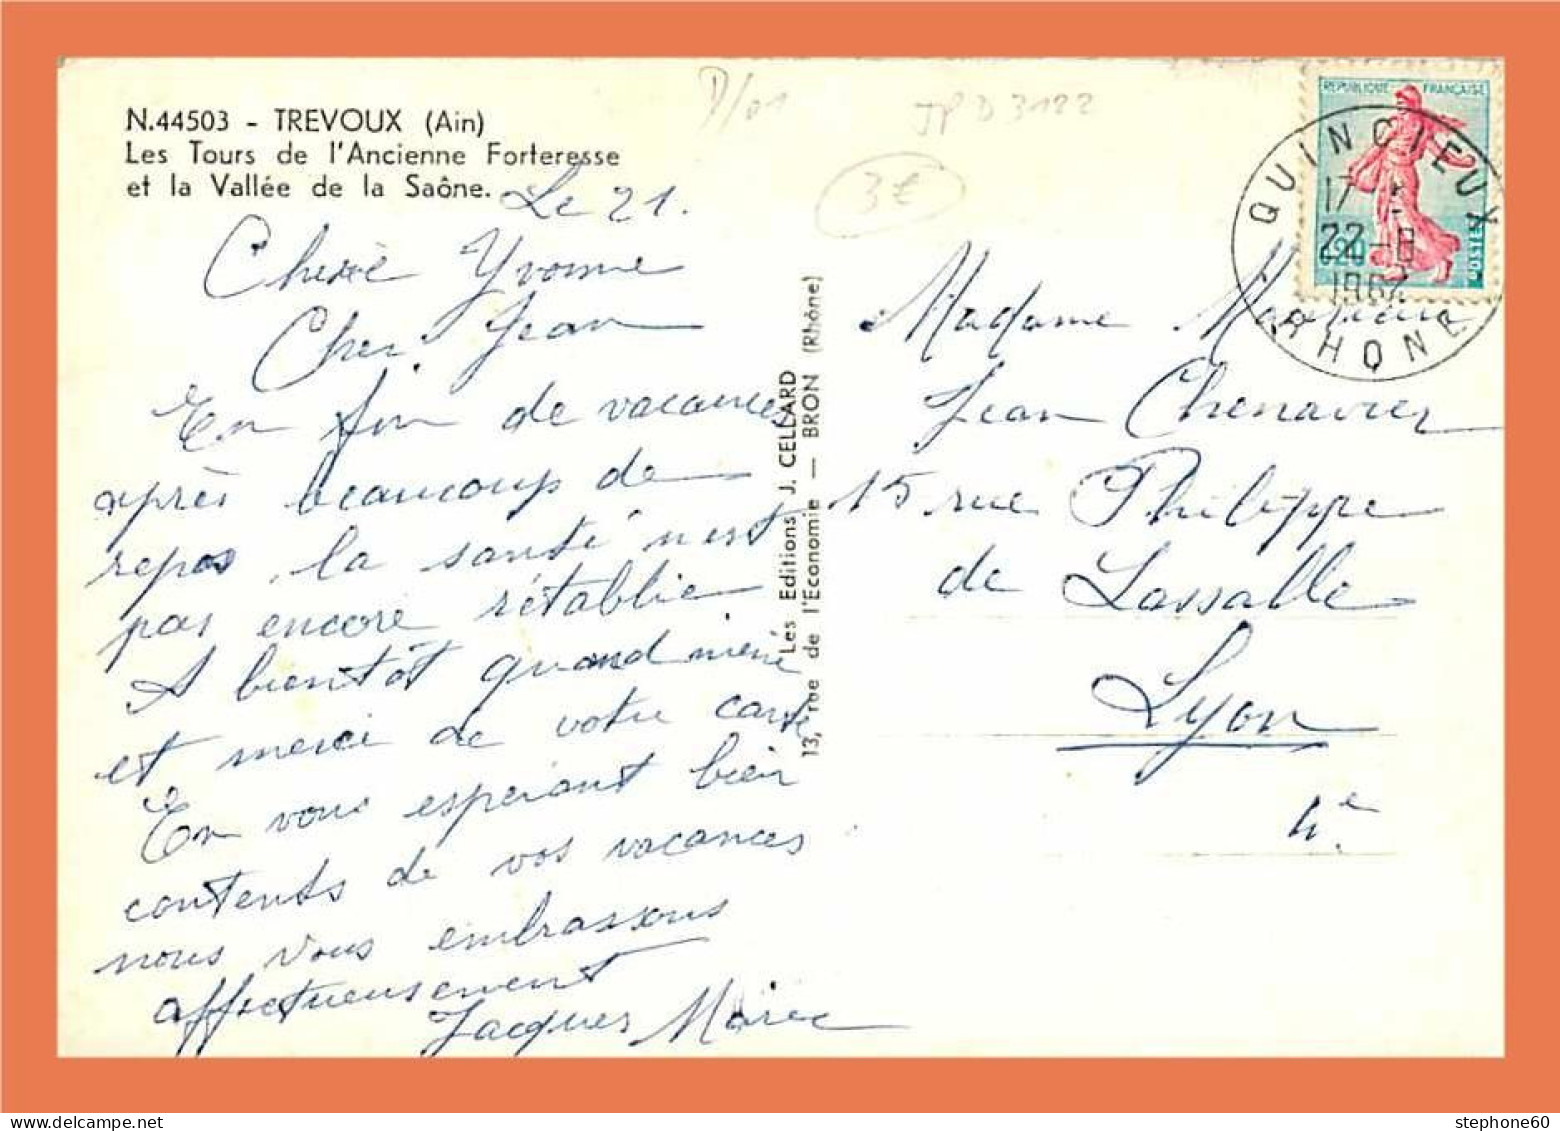 N.44503 - TREVOUX (Ain)
Les Tours de l'Ancienne Forteresse
et la Vallée de la Saône.
D/01
JP D 3122
3€
Le 21.
Cherie Yvonne
Cher Jean
En fin de vacances
après beaucoup de
repos, la santé n'est
pas encore rétablie
A bientôt quand même
et merci de votre carte
En vous esperant bien
contents de vos vacances
nous vous embrassons
affectueusement
Jacques Marie
Les Editions J. CELLARD
13, rue de l'Economie — BRON (Rhône)
REPUBLIQUE FRANÇAISE
0,20
POSTES
QUINCIEUX
17
22-8
196
RHONE
Madame
Jean Chenavier
15 rue Philippe
de Lassalle
Lyon
4e.
stephone60